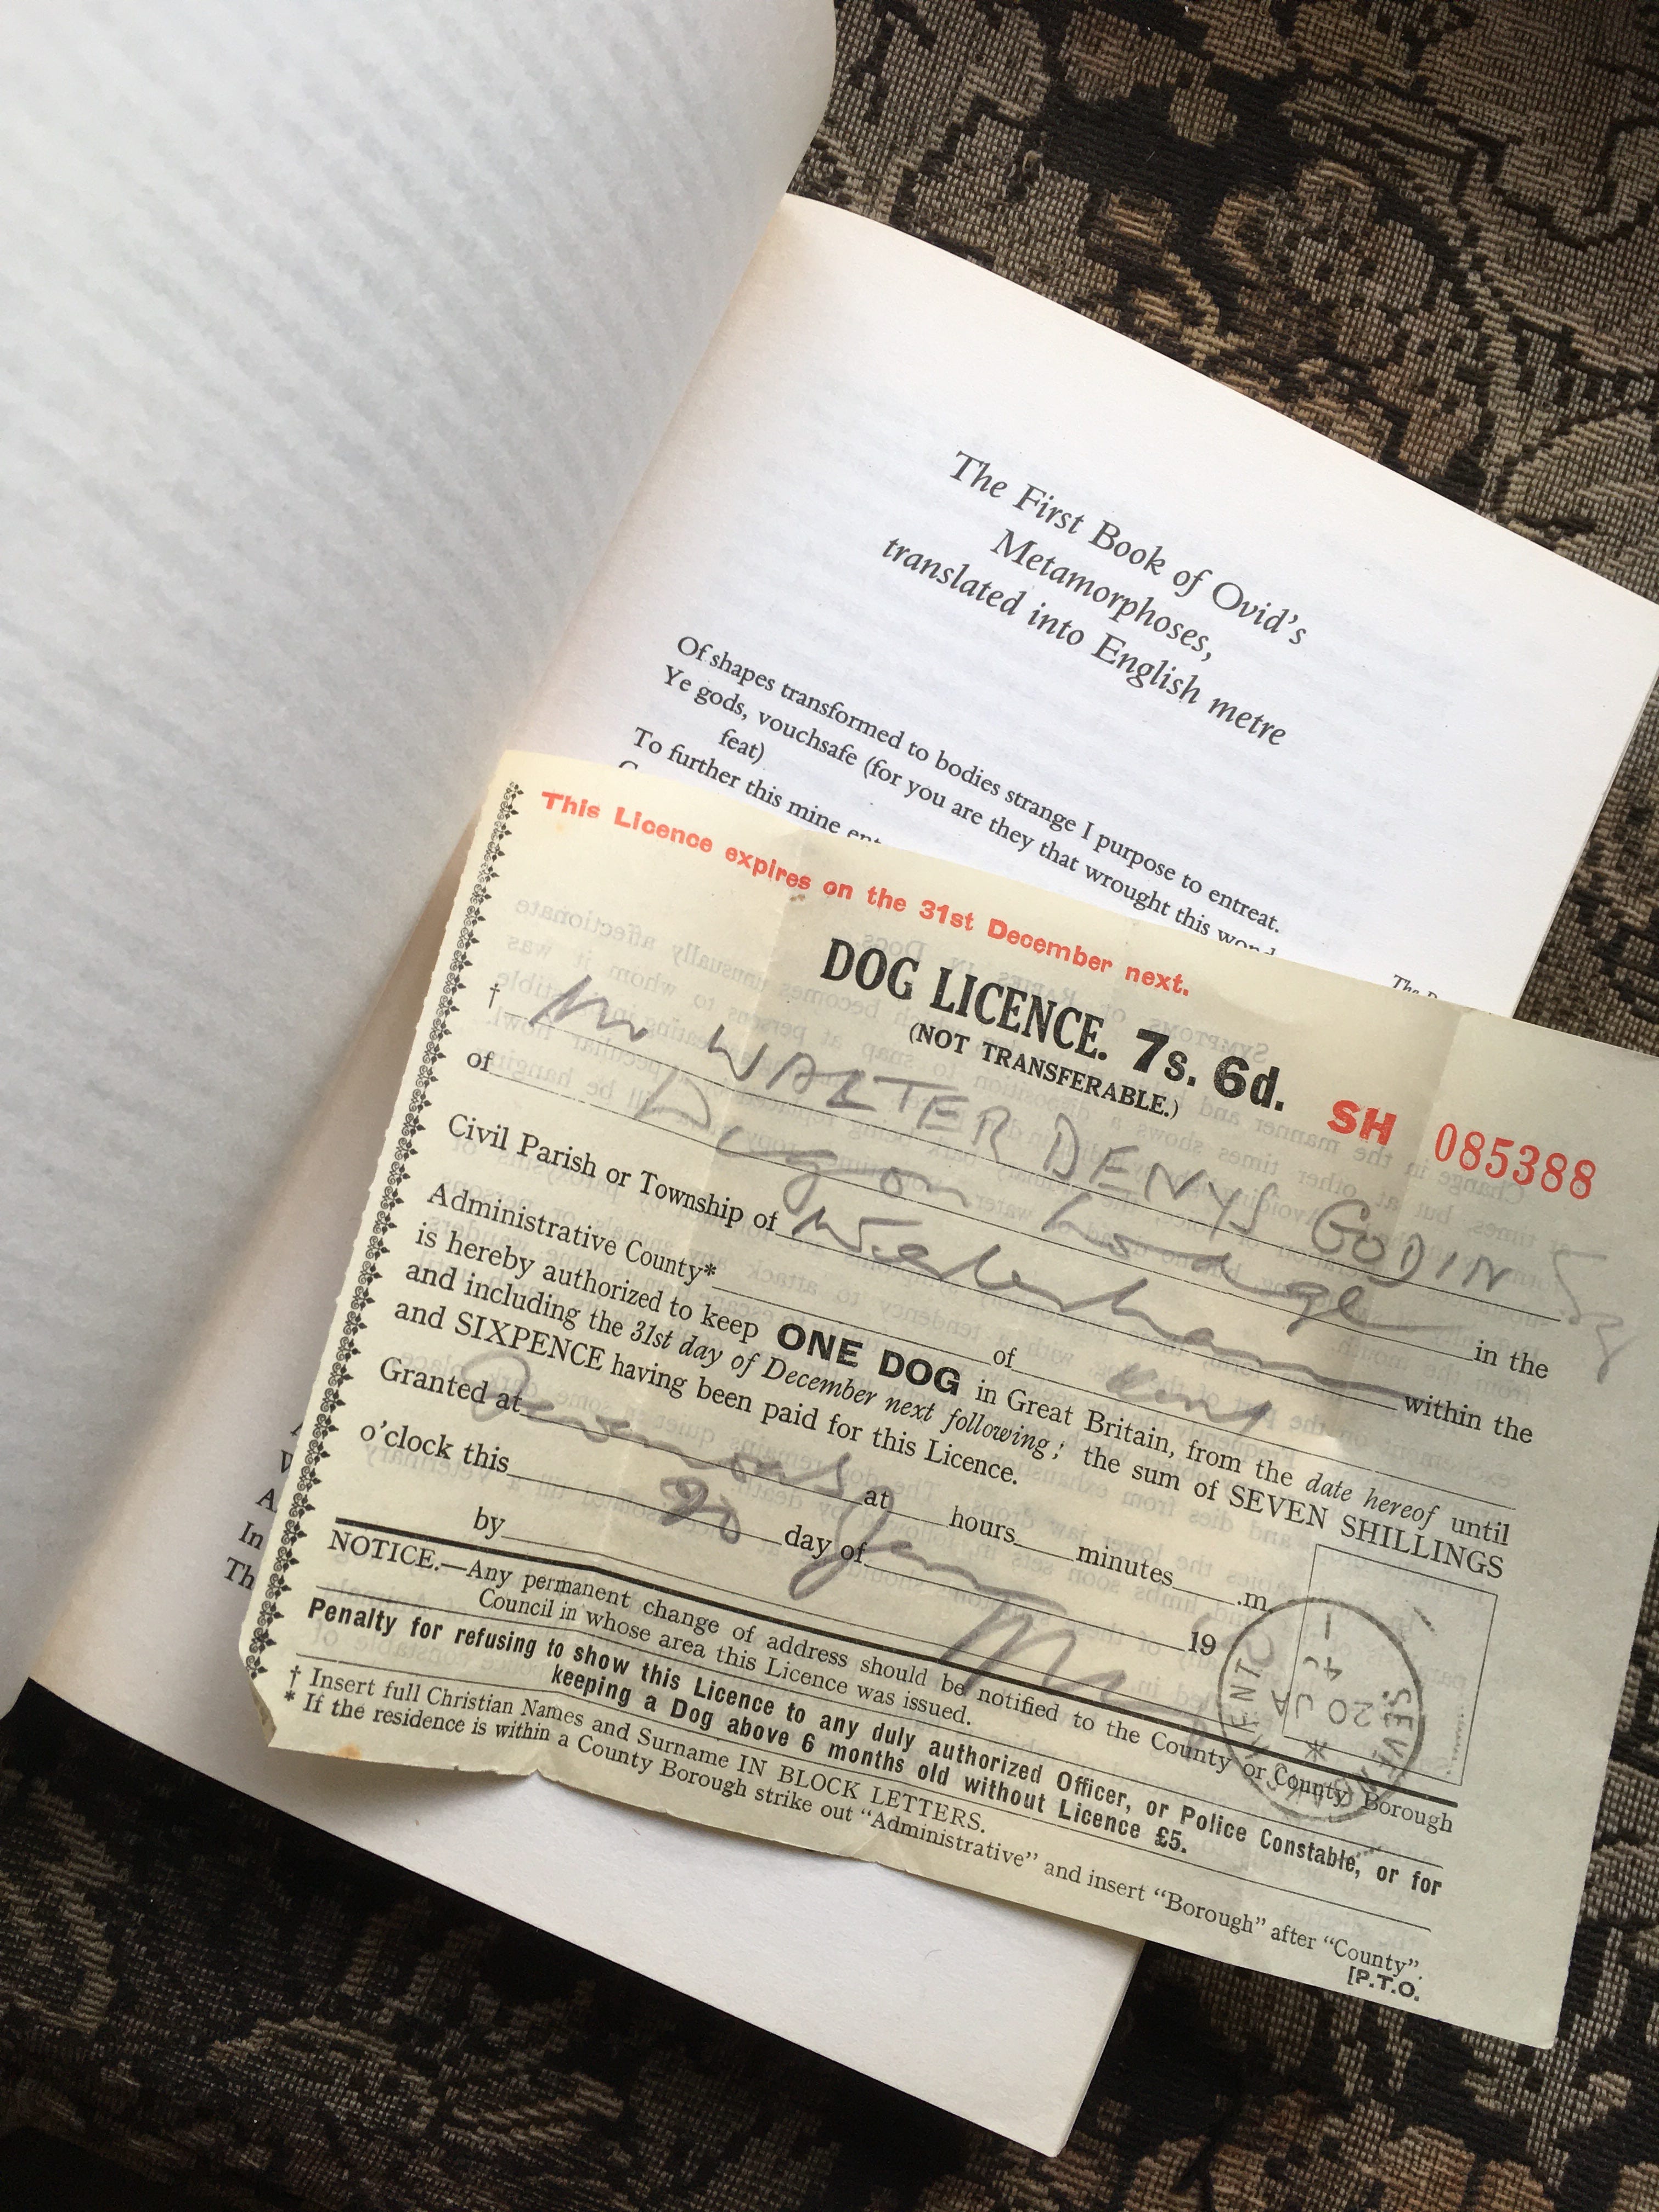 The First Book of Ovid's
Metamorphoses,
translated into English metre
Of shapes transformed to bodies strange I purpose to entreat.
Ye gods, vouchsafe (for you are they that wrought this
feat)
To further this mine
The
A
In
Th
This Licence expires on the 31st December next.
DOG LICENCE. 7s. 6d.
(NOT TRANSFERABLE.)
SH 085388
† Mr WALTER DENYS GODIN
of Lodge in the
Civil Parish or Township of Westerham within the
Administrative County* of Kent
is hereby authorized to keep ONE DOG in Great Britain, from the date hereof until
and including the 31st day of December next following; the sum of SEVEN SHILLINGS
and SIXPENCE having been paid for this Licence.
Granted at Sevenoaks at hours minutes .m.
o'clock this 20 day of Jan 19
by
NOTICE.—Any permanent change of address should be notified to the County or County Borough
Council in whose area this Licence was issued.
Penalty for refusing to show this Licence to any duly authorized Officer, or Police Constable, or for
keeping a Dog above 6 months old without Licence £5.
† Insert full Christian Names and Surname IN BLOCK LETTERS.
* If the residence is within a County Borough strike out "Administrative" and insert "Borough" after "County".
[P.T.O.
SEVENOAKS
KENT
20 JA